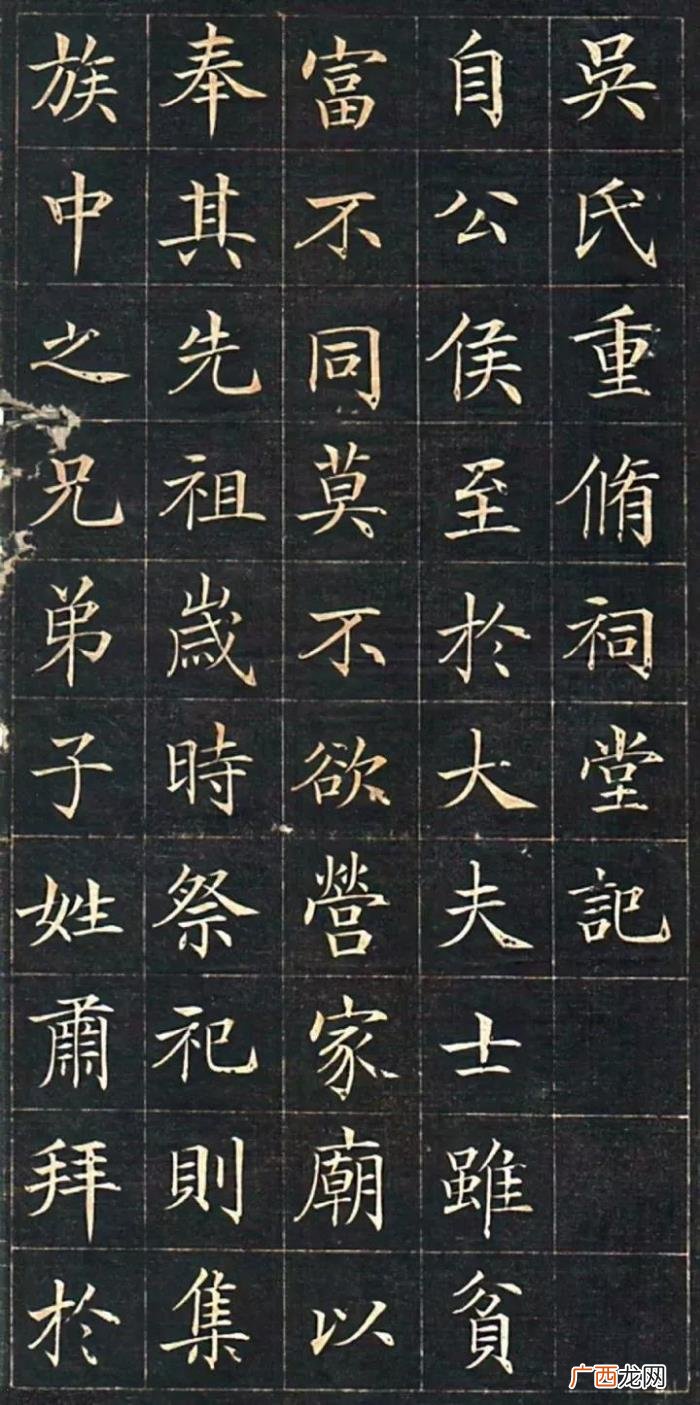 吳氏重脩祠堂記
自公侯至於大夫士雖貧
富不同莫不欲營家廟以
奉其先祖歲時祭祀則集
族中之兄弟子姓肅拜於
广西龙网